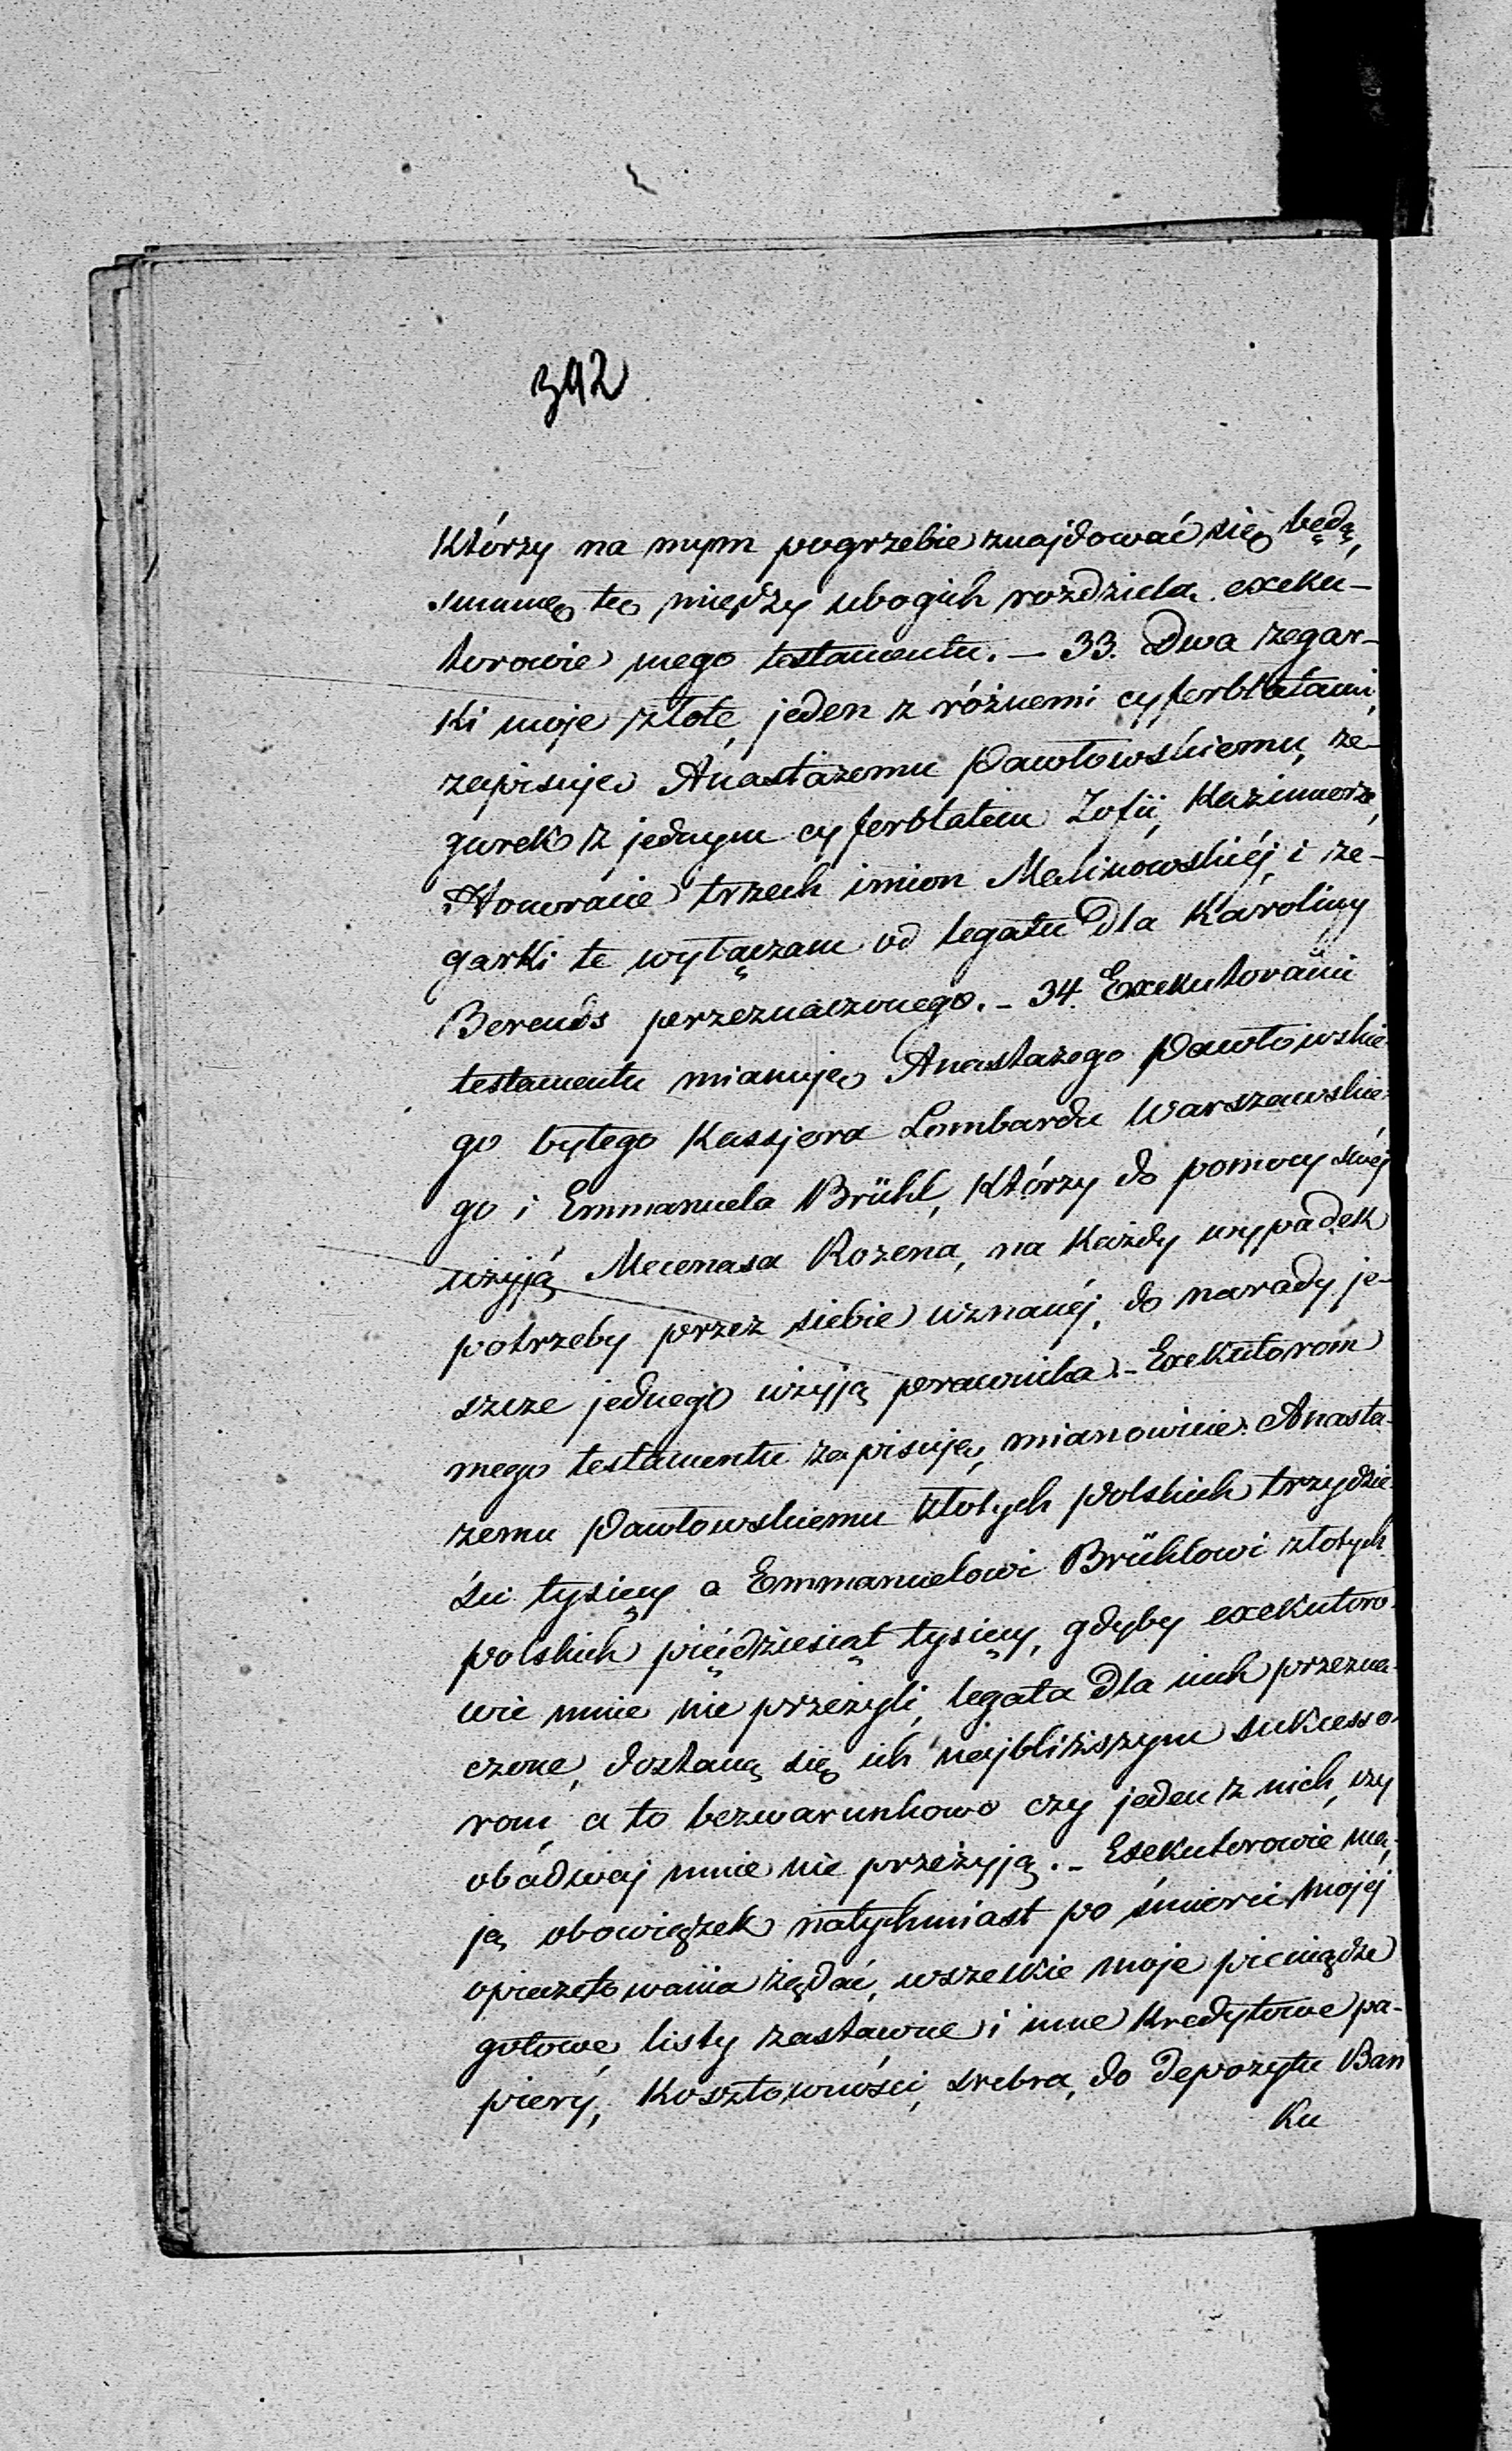 392
którzy na mym pogrzebie znajdować się będą,
summę tę między ubogich rozdziela, exeku-
torowie mego testamentu. – 33. Dwa zegar-
ki moje złote, jeden z różnemi cyferblatami,
zapisuję Anastazemu Pawłowskiemu, ze-
garek z jednym cyferblatem Zofii, Kazimierze,
Honoracie trzech imion Malinowskiéj, i ze-
garki te wyłączam od legatu dla Karoliny
Berends przeznaczonego. – 34. Exekutorami
testamentu mianuję Anastazego Pawłowskie-
go byłego Kassjera Lombardu Warszawskie-
go i Emmanuela Brühl, którzy do pomocy swéj
użyją Mecenasa Rozena, na każdy wypadek
potrzeby przez siebie uznanéj, do narady je-
szcze jednego użyją prawnika. – Exekutorom
mego testamentu zapisuję, mianowicie: Anasta-
zemu Pawłowskiemu złotych polskich trzydzie-
ści tysięcy a Emmanuelowi Brühlowi złotych
polskich pięćdziesiąt tysięcy, gdyby exekutoro-
wie mnie nie przeżyli, legata dla nich przezna-
czone, dostaną się ich najbliższym sukcesso-
rom, a to bezwarunkowo czy jeden z nich, czy
obadwaj mnie nie przeżyją. – Exekutorowie ma-
ją obowiązek natychmiast po śmierci mojéj
opieczętowania żądać, wszelkie moje pieniądze
gotowe, listy zastawne i inne kredytowe pa-
piery, kosztowności, srebra, do depozytu Ban
ku